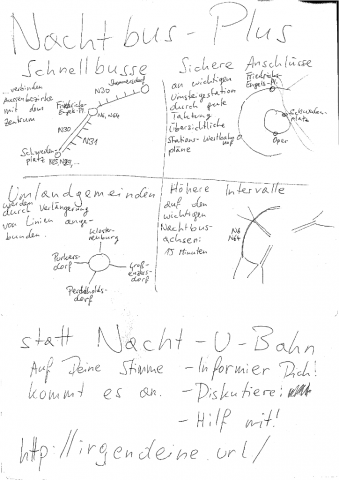 Nachtbus-Plus
Schnellbusse
...verbinden
Aussenbezirke
mit dem
Zentrum
N30
Friedrich-
Engels-Pl.
N6, N64
N30
N31
Schweden-
platz
Sichere Anschlüsse
an wichtigen
Umsteigestation
durch gute
Taktung
übersichtliche
Stations-
pläne
Friedrich-
Engels-Pl.
Schweden-
platz
Westbahn
hof
Oper
Umlandgemeinden
werden
durch Verlängerung
von Linien ange-
bunden.
Kloster-
neuburg
Purkers-
dorf
Groß-
enzers-
dorf
Perchtolds-
dorf
Höhere Intervalle
auf den
wichtigen
Nachtbus-
achsen:
15 Minuten
N6
N64
statt Nacht-U-Bahn
Auf Deine Stimme
kommt es an.
- Informier Dich!
- Diskutiere!
- Hilf mit!
http://irgendeine.url/